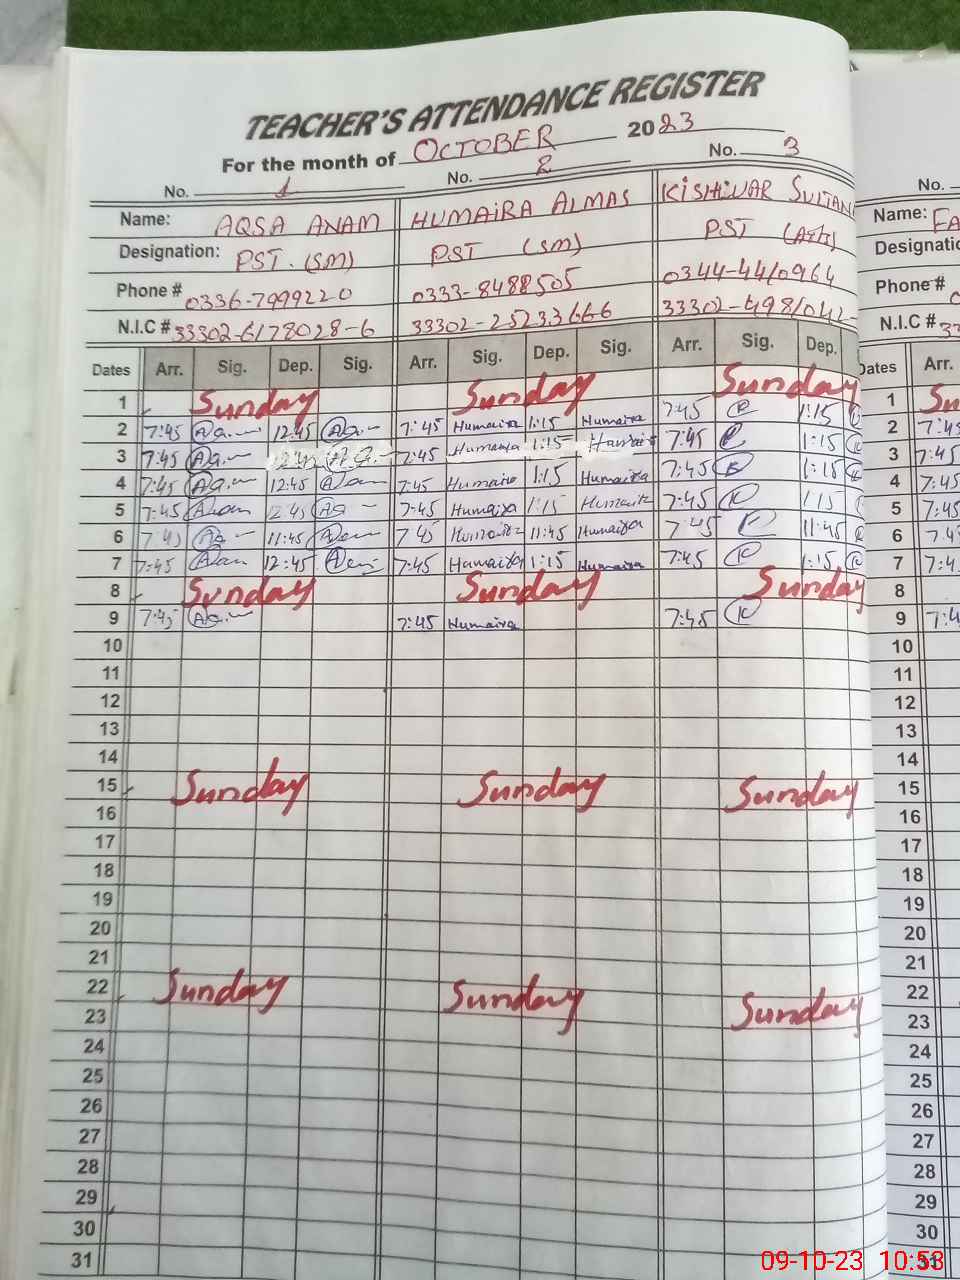 TEACHER'S ATTENDANCE REGISTER
For the month of OCTOBER 2023
No. 1 No. 2 No. 3 No.
Name: AQSA ANAM HUMAIRA ALMAS KISHWAR SULTAN Name: FA
Designation: PST (SM) PST (SM) PST Designatio
Phone # 0336-7999220 0333-8488505 0344-4410964 Phone #
N.I.C # 33302-6178028-6 33302-25233666 33302-498 N.I.C # 33
Dates Arr. Sig. Dep. Sig. Arr. Sig. Dep. Sig. Arr. Sig. Dep. Dates Arr.
1 Sunday Sunday Sunday 1 Su
2 7:45 12:45 7:45 Humaira 1:15 Humaira 7:45 K 1:15 2 7:45
3 7:45 12:45 7:45 Humaira 1:15 Humaira 7:45 K 1:15 3 7:45
4 7:45 12:45 7:45 Humaira 1:15 Humaira 7:45 K 1:15 4 7:45
5 7:45 12:45 7:45 Humaira 1:15 Humaira 7:45 K 1:15 5 7:45
6 7:45 11:45 7:45 Humaira 11:45 Humaira 7:45 K 11:45 6 7:4
7 7:45 12:45 7:45 Humaira 1:15 Humaira 7:45 K 1:15 7 7:4
8 Sunday Sunday Sunday 8
9 7:45 7:45 Humaira 7:45 K 9 7:4
10 10
11 11
12 12
13 13
14 14
15 Sunday Sunday Sunday 15
16 16
17 17
18 18
19 19
20 20
21 21
22 Sunday Sunday Sunday 22
23 23
24 24
25 25
26 26
27 27
28 28
29 29
30 30
31 31
09-10-23 10:53